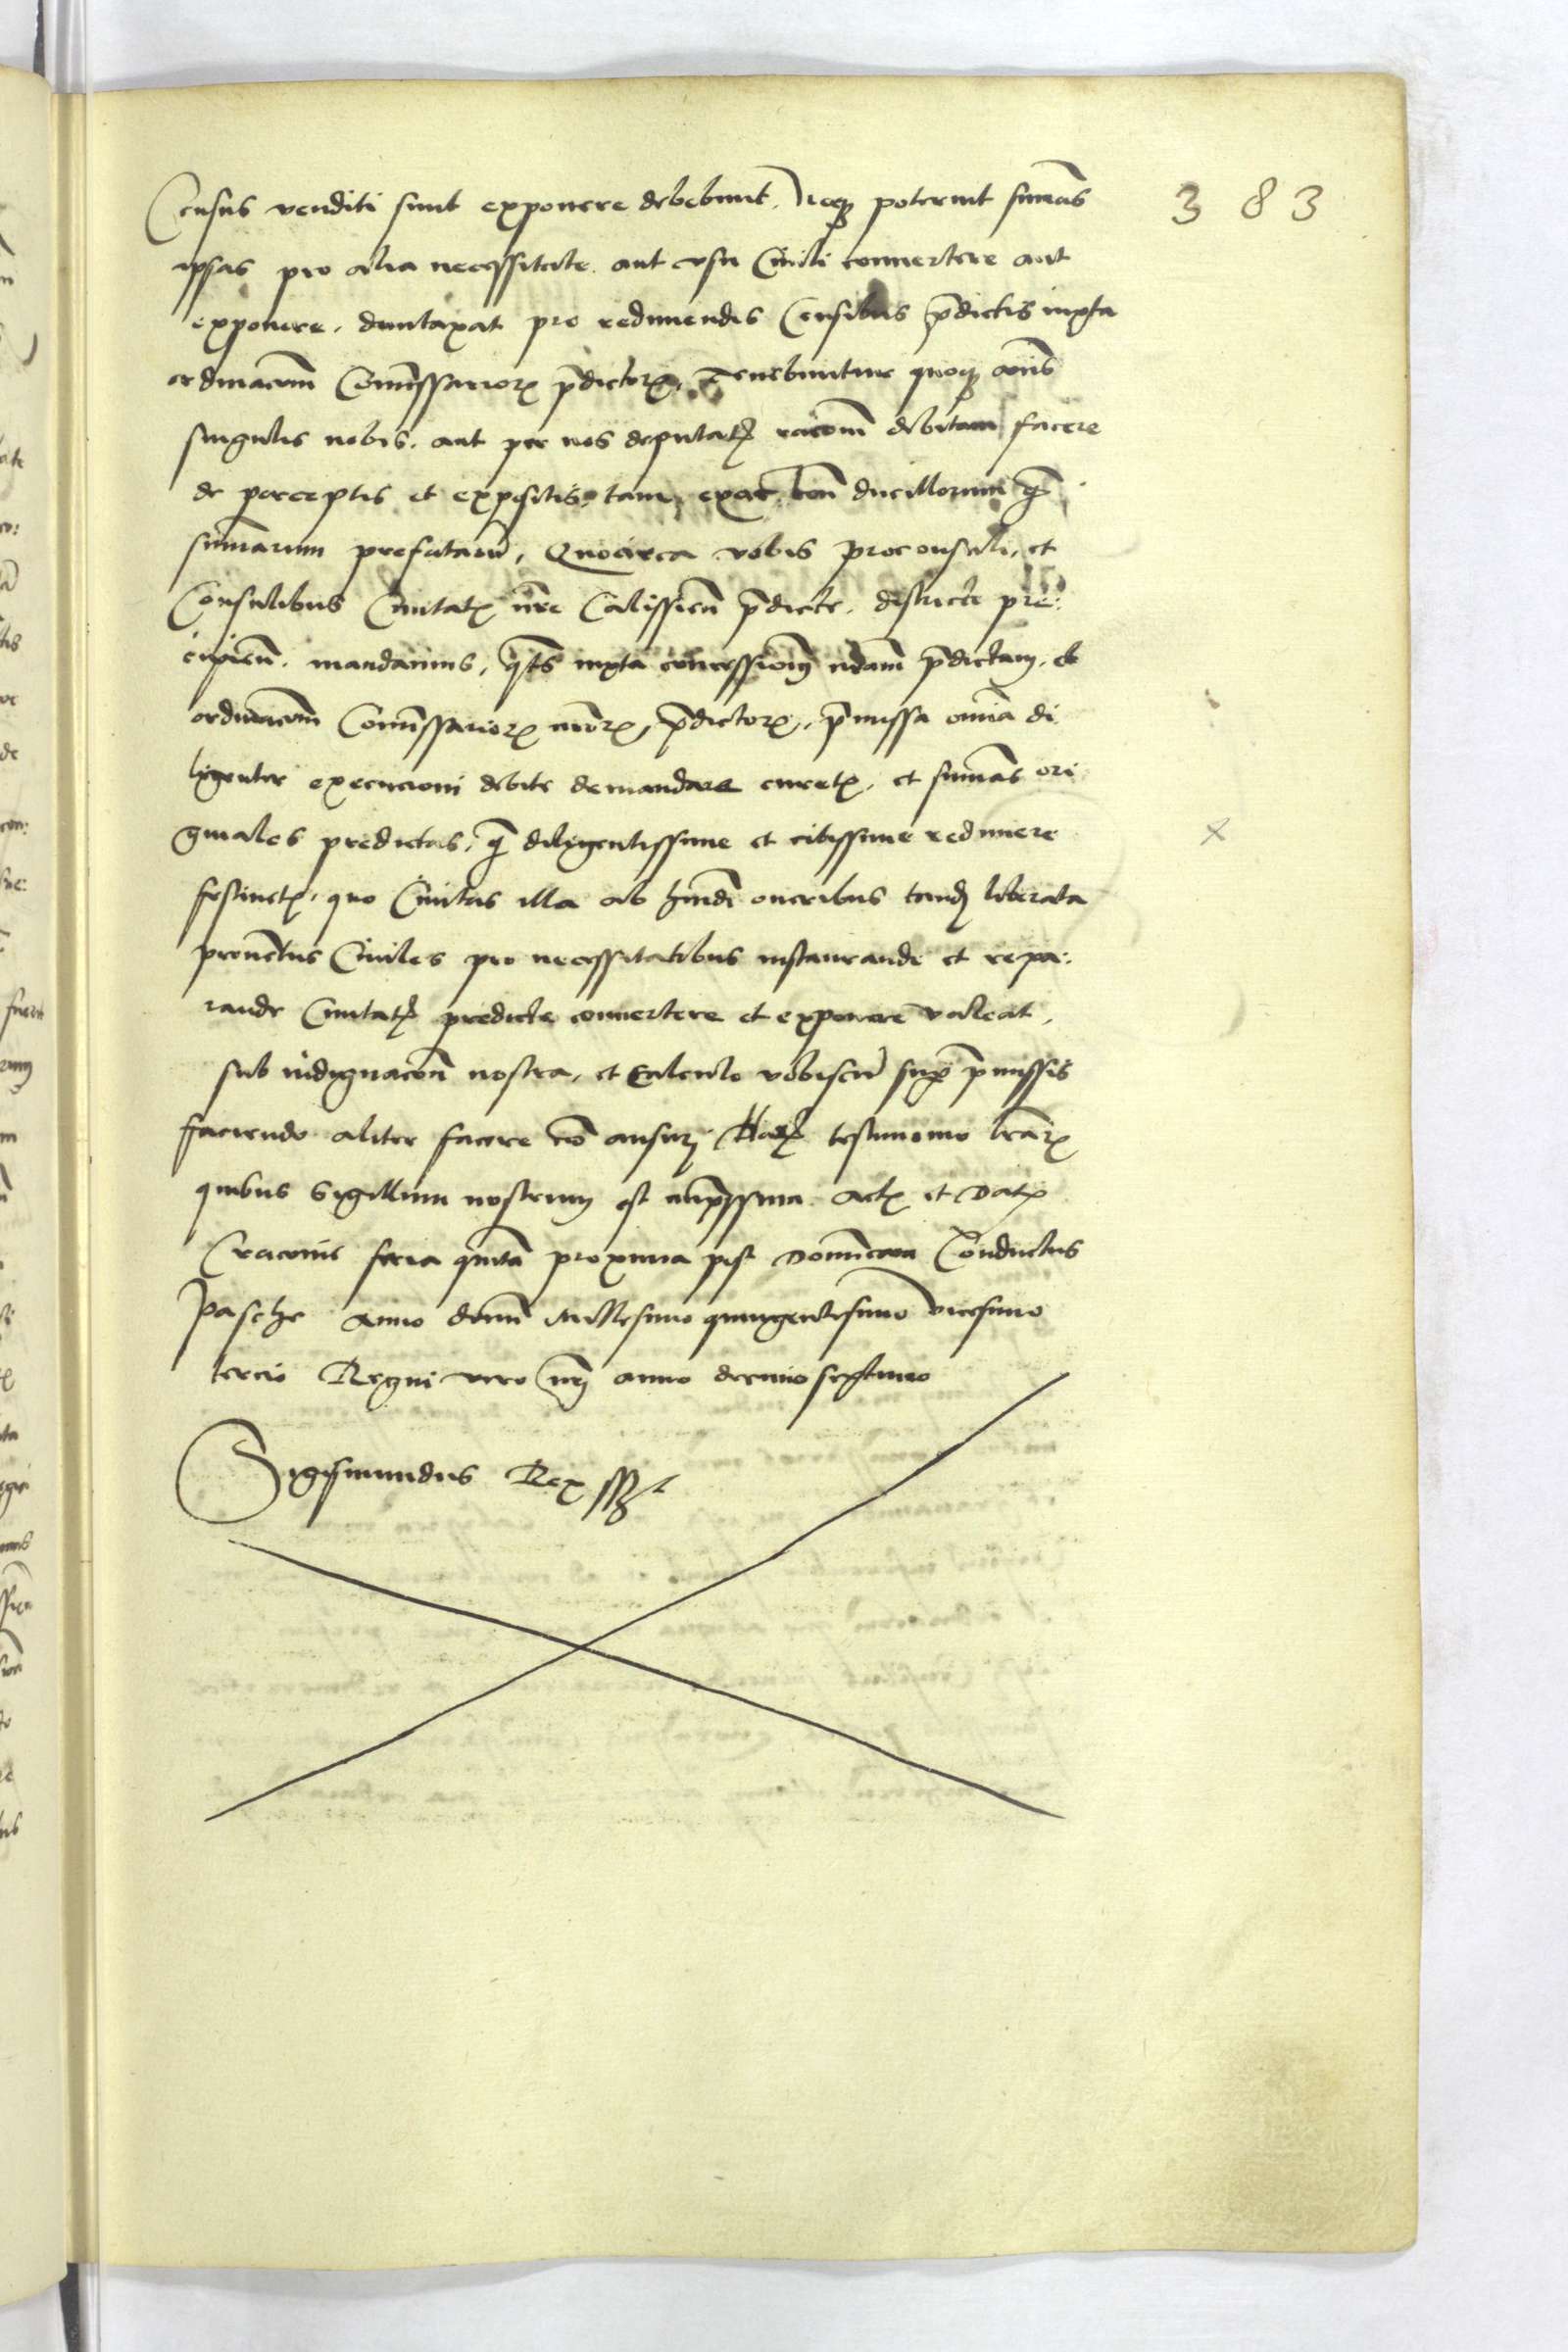 383
Census venditi sunt exponere debebunt. Neq poterint sumas
ipsas pro alia necessitate aut usu Civili convertere aut
exponere. duntaxat pro redimendis Censibus pdictis iuxta
ordinacom Comissarior pdictor, Tenebuntur quoq annis
singulis nobis. aut per nos deputat racom debitam facere
de perceptis et expositis, tam, ducillorum q
sumarum prefatarum, Quocirca vobis proconsuli, et
Consulibus Civitat nre Calissien pdicte. districte pre:
cipien. mandamus, qts iuxta concessionem pdictam, et
ordinacom Comissarior nror, pdictor, pmissa omnia di
ligenter execucioni debite demandare curet, et sumas ori
ginales predictas, q diligentissime et citissime redimere
festinet, quo Civitas illa ab hmodi oneribus tand liberata
proventus Civiles pro necessitatibus instaurande et repa:
rande Civitat predicte convertere et exponere valeat,
sub indignacon nostra, et Calculo vobiscu sup pmissis
faciendo aliter facere no ausuri Har testimonio lrar
quibus Sigillum nostrum est Act et Dat
Cracovie feria quinta proxima post Dominicam Conductus
Pasche Anno domi Millesimo quingentesimo vicesimo
tercio Regni vero nri anno decimo septimo
Sigismundus Rex sst